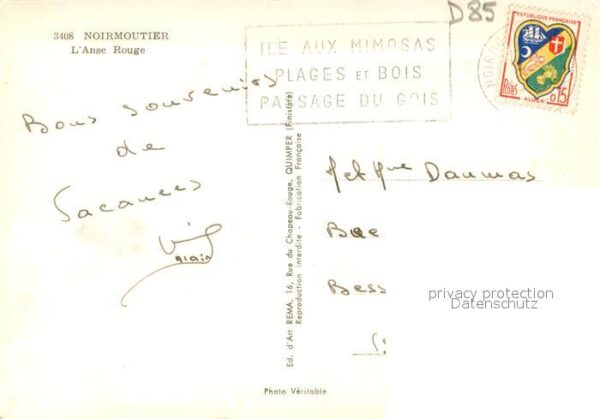 3408 NOIRMOUTIER
L'Anse Rouge
D85
ILE AUX MIMOSAS
PLAGES ET BOIS
PASSAGE DU GOIS
REPUBLIQUE FRANÇAISE
POSTES
ALGER
0,15
Bons souvenirs
de
Vacances
Alain
Ed. d'Art REMA, 16, Rue du Chapeau-Rouge, QUIMPER (Finistère)
Reproduction interdite - Fabrication Française
M et Mme Daumas
Bess
privacy protection
Datenschutz
Photo Véritable